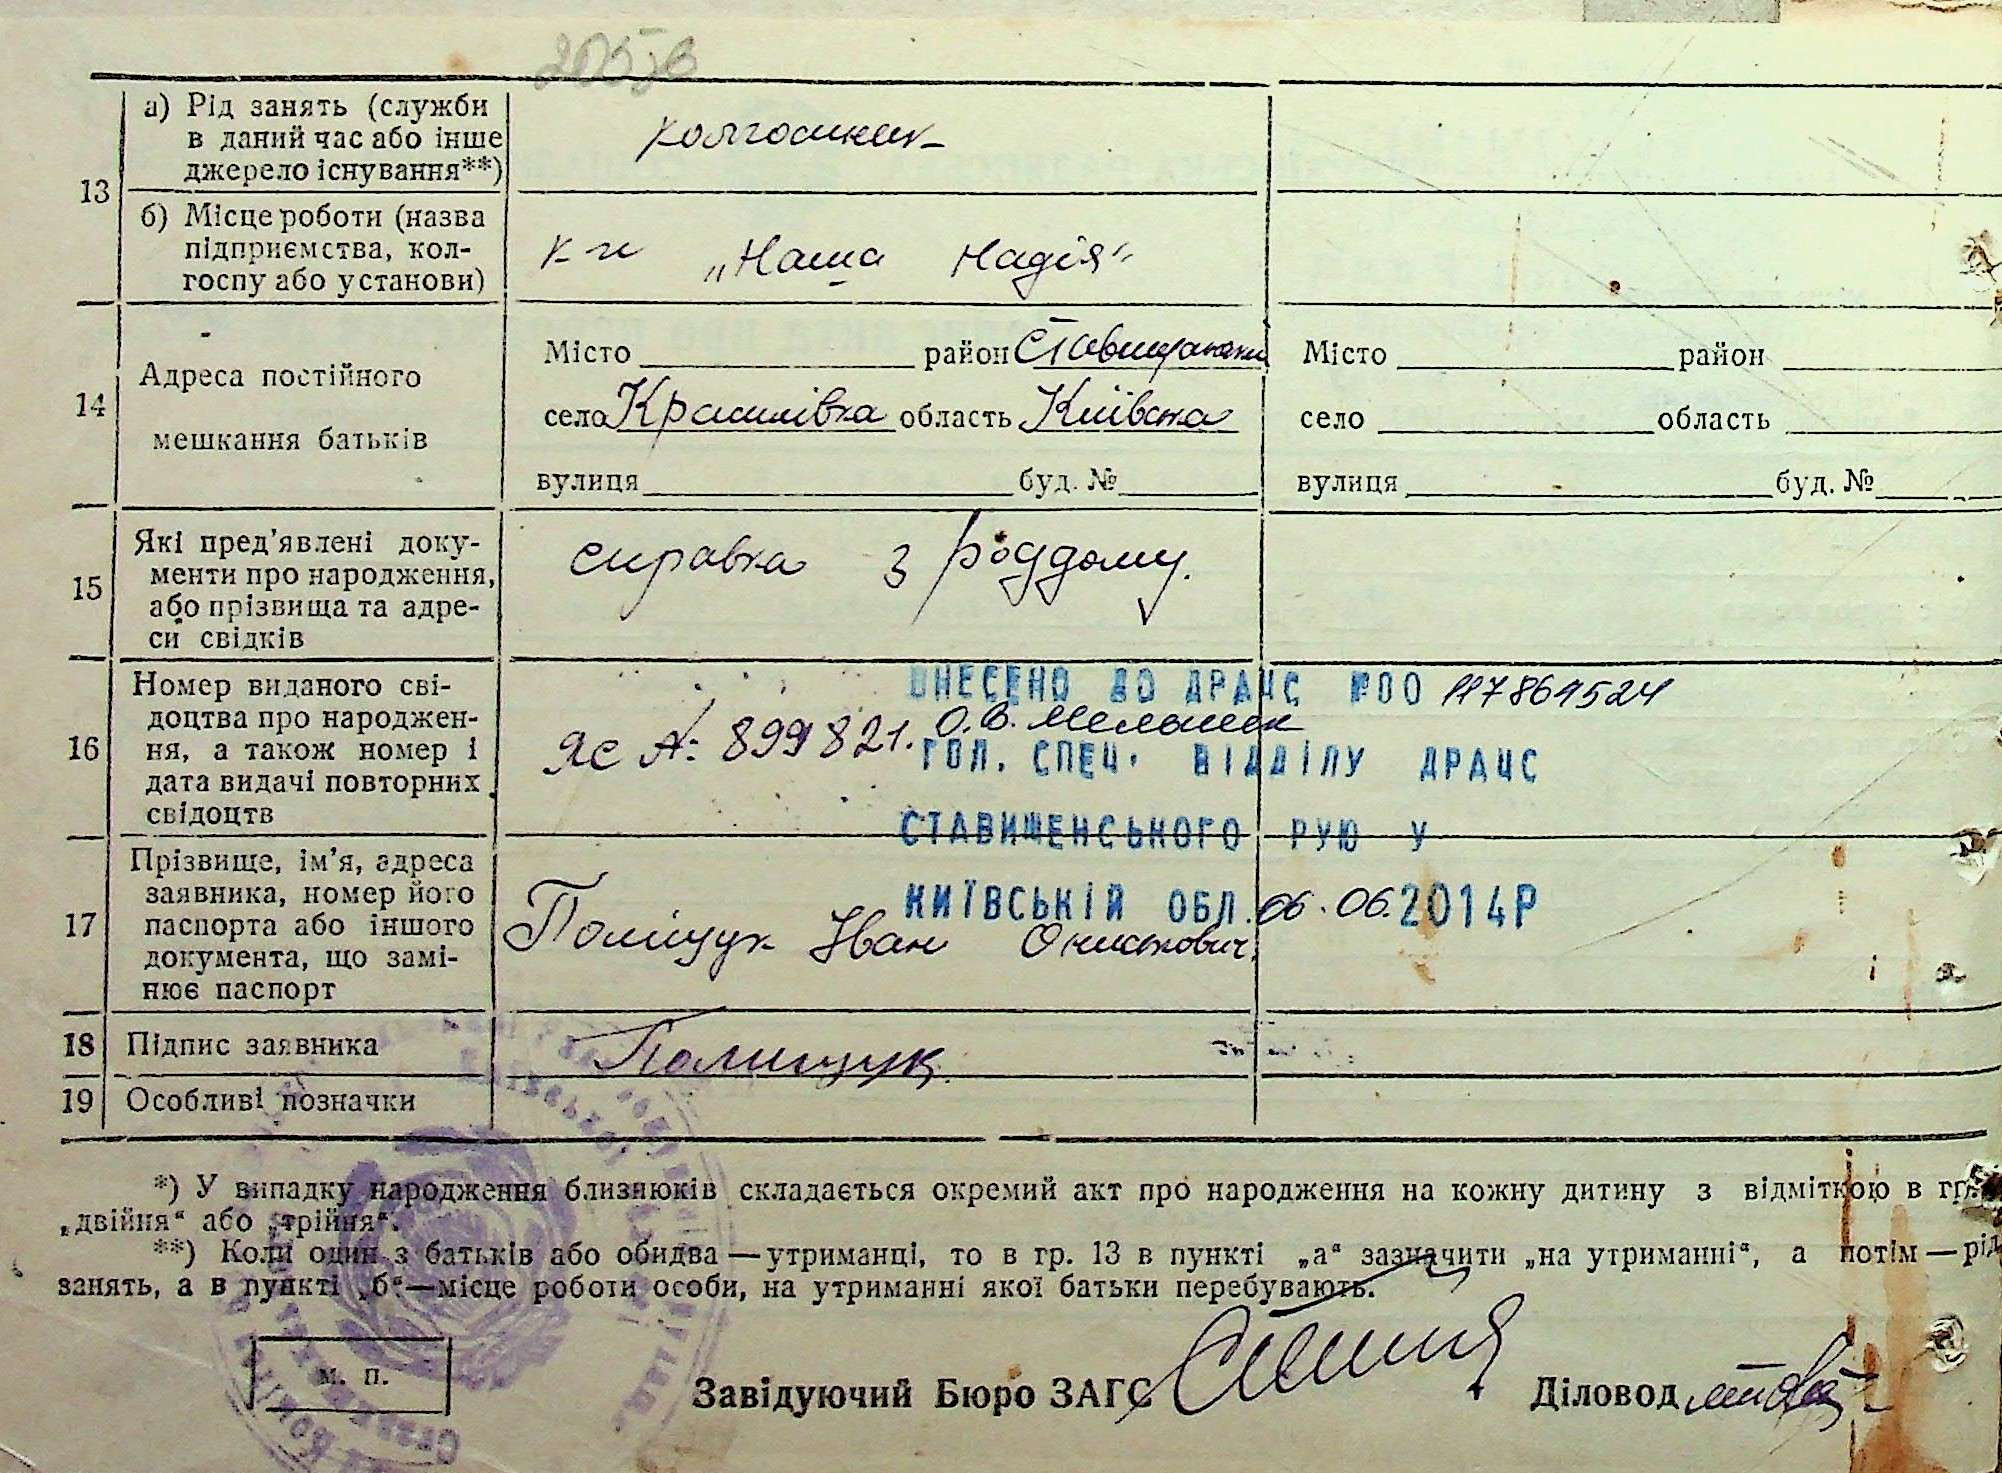 а) Рід занять (служби
в даний час або інше
джерело існування**)
колгосник
13
б) Місце роботи (назва
підприємства, кол-
госпу або установи)
к-п „Наша Надія"
14
Адреса постійного
мешкання батьків
Місто район Ставищанський
село Красилівка область Київська
вулиця буд. №
Місто район
село область
вулиця буд. №
15
Які пред'явлені доку-
менти про народження,
або прізвища та адре-
си свідків
справка з роддому.
16
Номер виданого сві-
доцтва про народжен-
ня, а також номер і
дата видачі повторних
свідоцтв
ЯС № 899821.
ВНЕСЕНО ДО ДРАЦС №00 117861524
О.В. Мельник
ГОЛ. СПЕЦ. ВІДДІЛУ ДРАЦС
СТАВИЩЕНСЬКОГО РУЮ У
КИЇВСЬКІЙ ОБЛ. 06.06.2014Р
17
Прізвище, ім'я, адреса
заявника, номер його
паспорта або іншого
документа, що замі-
нює паспорт
Поліщук Іван Онискович
18 Підпис заявника Полищук
19 Особливі позначки
*) У випадку народження близнюків складається окремий акт про народження на кожну дитину з відміткою в гр.
„двійня" або „трійня".
**) Коли один з батьків або обидва—утриманці, то в гр. 13 в пункті „а" зазначити „на утриманні", а потім — рід
занять, а в пункті „б"—місце роботи особи, на утриманні якої батьки перебувають.
м. п.
Завідуючий Бюро ЗАГС
Діловод